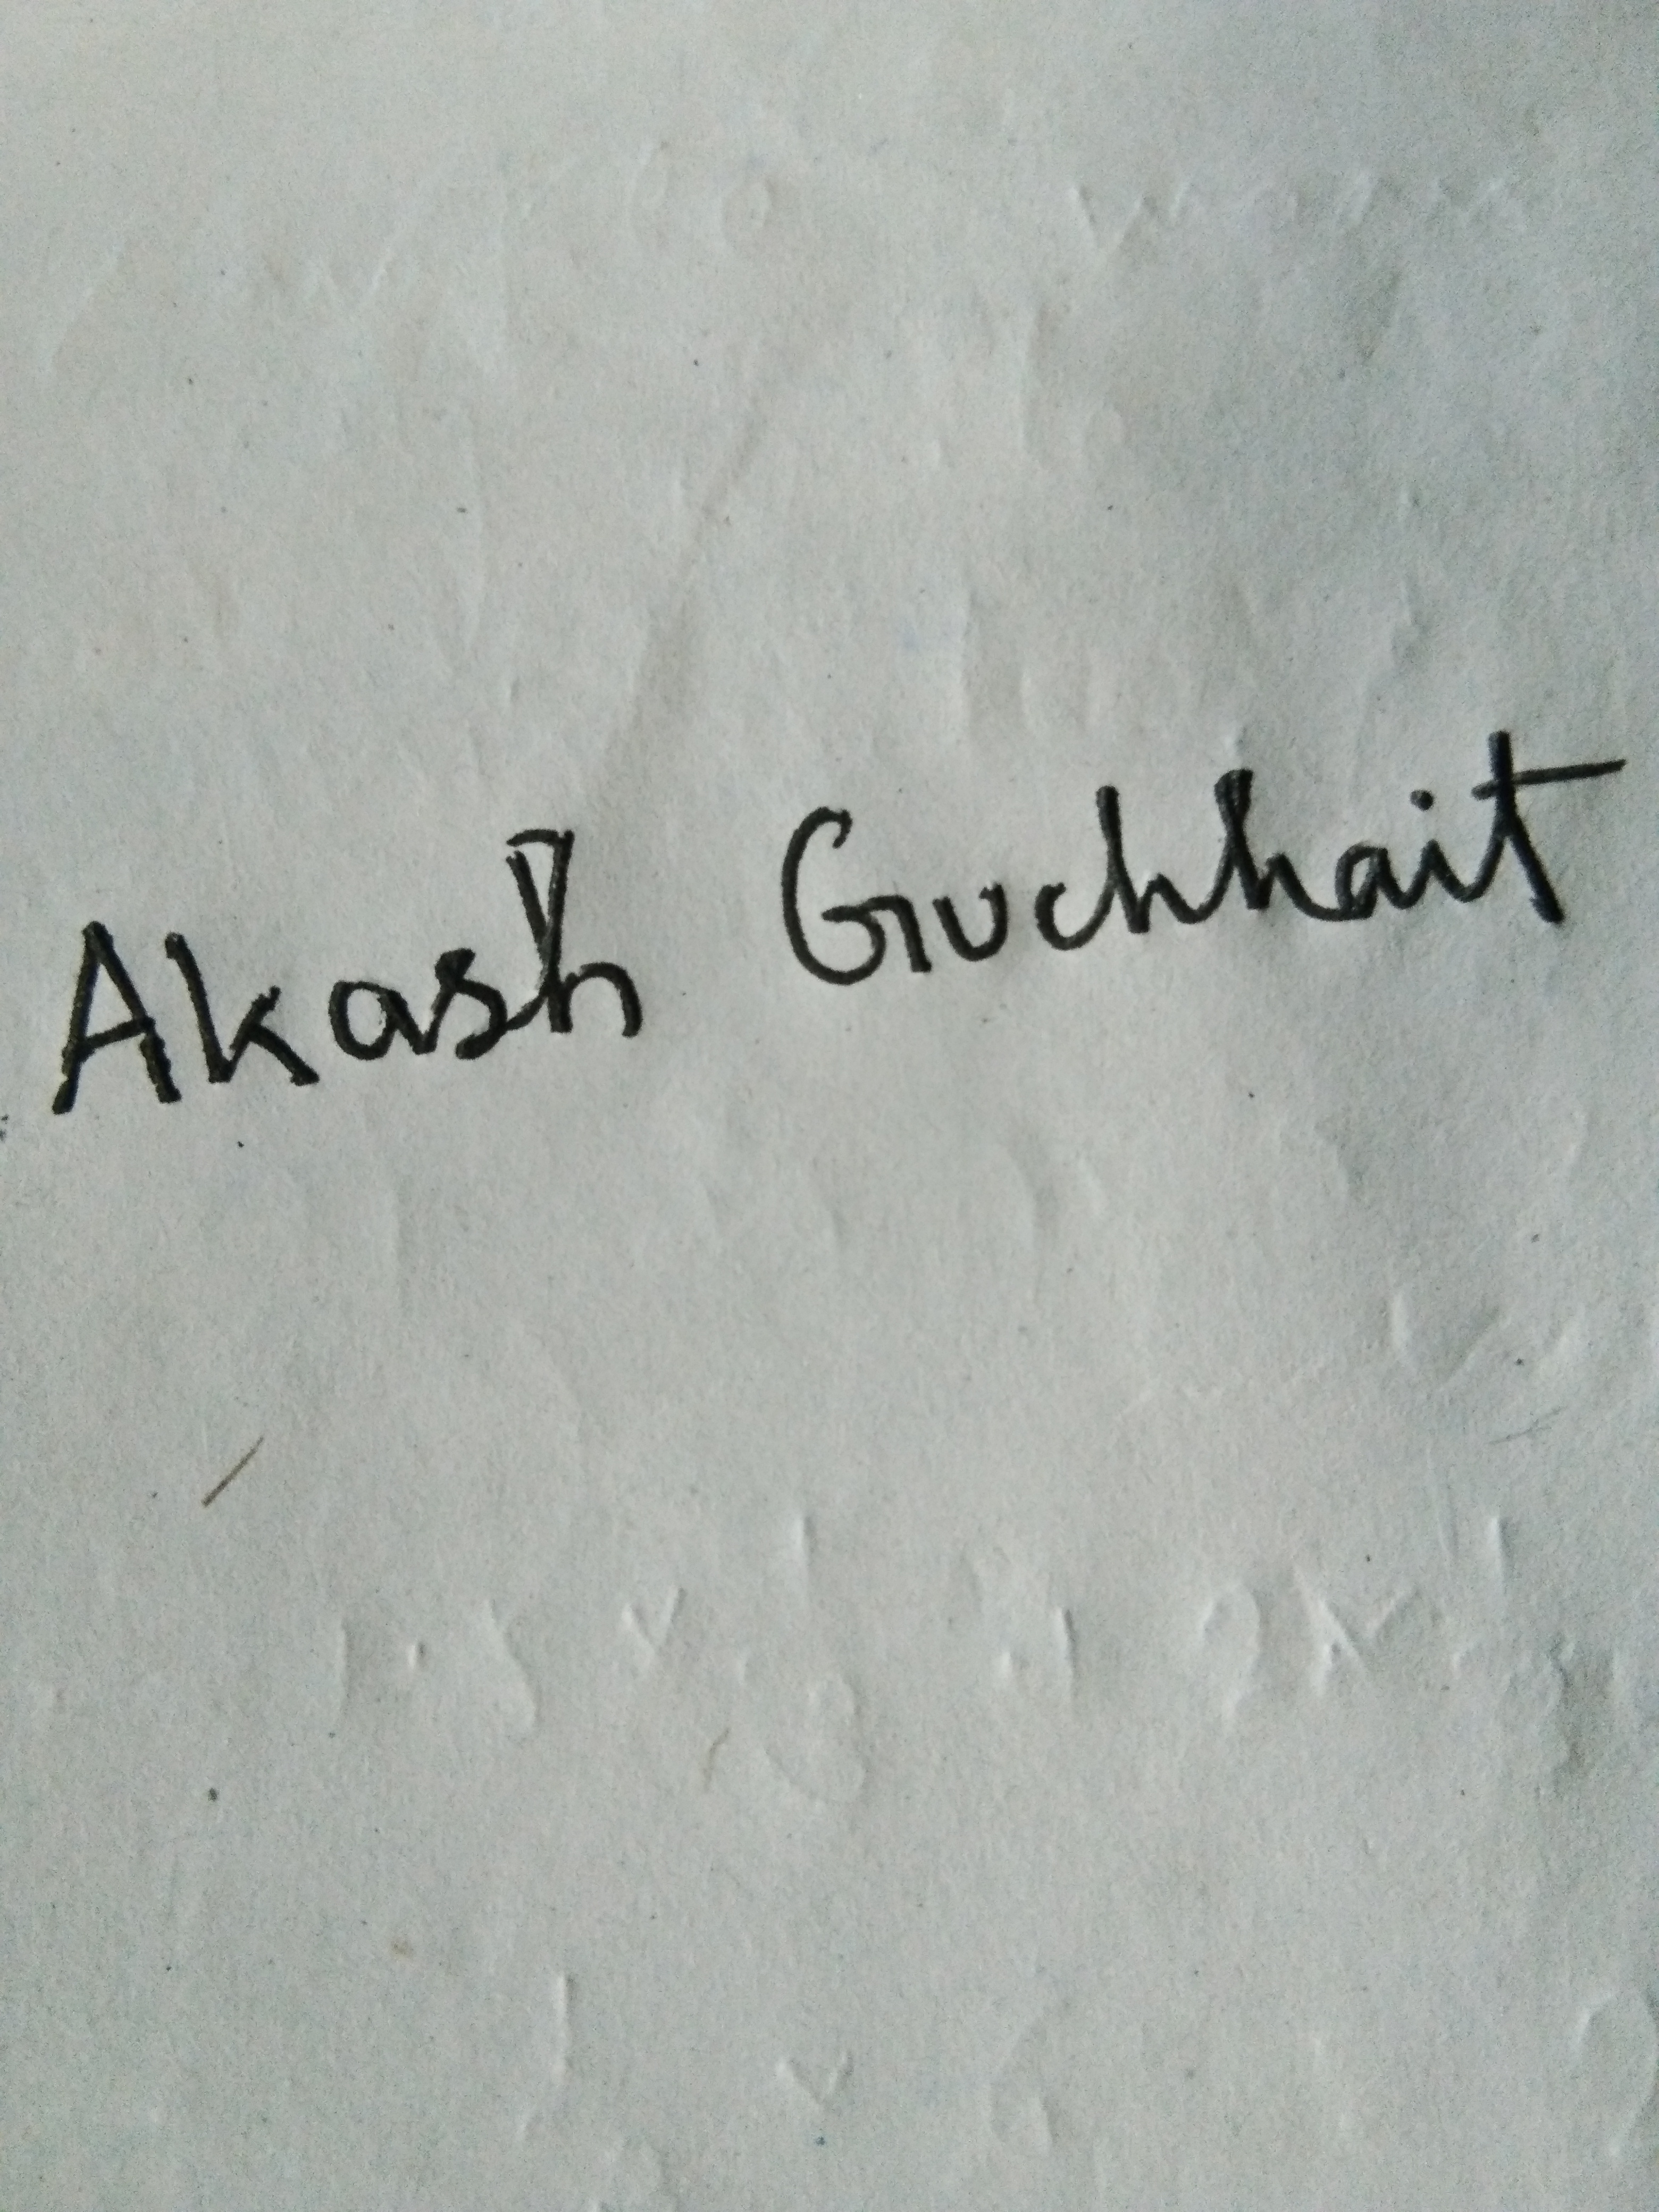 Akash Guchhait